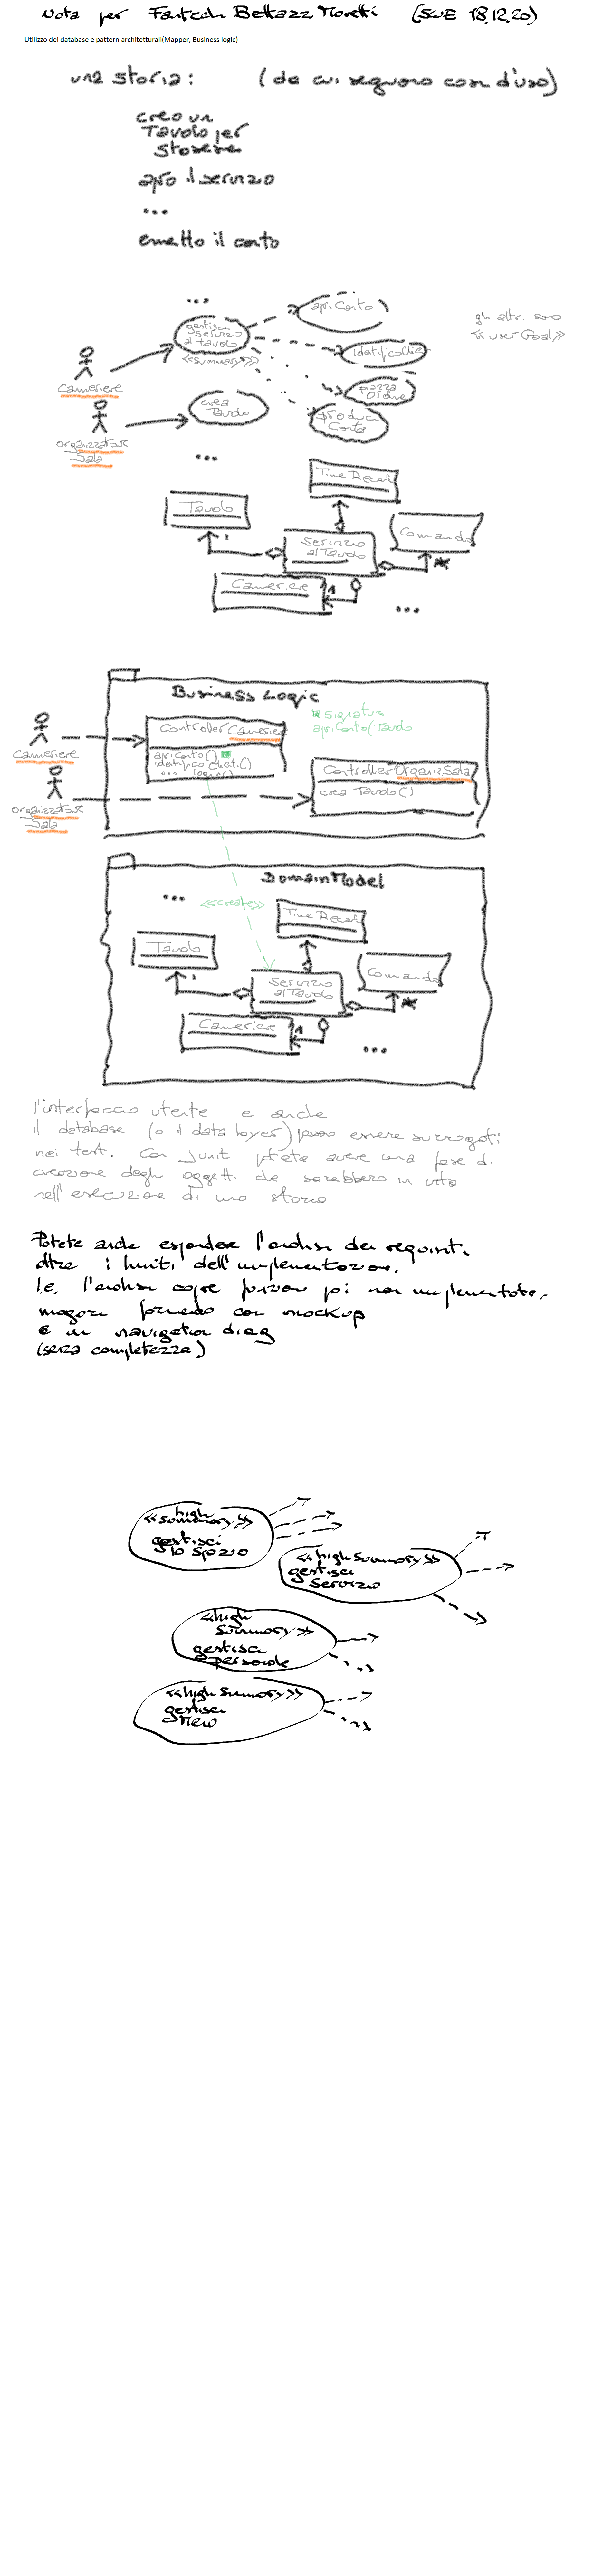 Nota per Fantech Bettazz Moretti (SWE 18.12.20)
- Utilizzo dei database e pattern architetturali(Mapper, Business logic)
una storia: (da cui seguono casi d'uso)
creo un
Tavolo per
apro il servizio
...
emetto il conto
...
gestisci
servizio
al tavolo
<<summary>>
apriConto
gli altri sono
<<user Goal>>
Cameriere
crea
Tavolo
produci
Conto
organizzatore
Sala
...
Tavolo
Servizio
al Tavolo
Comanda
1
*
Cameriere
1
...
Business Logic
* signature
apriConto(Tavolo
ControllerCameriere
apriConto() *
... login()
Cameriere
ControllerOrganizSala
crea Tavolo()
organizzatore
Sala
DomainModel
...
<<create>>
Tavolo
Servizio
al Tavolo
Comanda
1
*
Cameriere
1
...
l'interfaccia utente e anche
il database (o il data layer) possono essere surrogati
nei test. Con Junit potete avere una fase di
creazione degli oggetti che sarebbero in vita
nell'esecuzione di una storia
Potete anche espandere l'analisi dei requisiti
oltre i limiti dell'implementazione.
I.e. l'analisi copre funzioni poi non implementate,
magari fornendo con mockup
e un navigation diag
(senza completezza)
high
<<summary>>
gestisci
lo spazio
<<high Summary>>
gestisci
Servizio
<<high
Summary>>
gestisci
personale
<<high Summary>>
gestisci
Menu